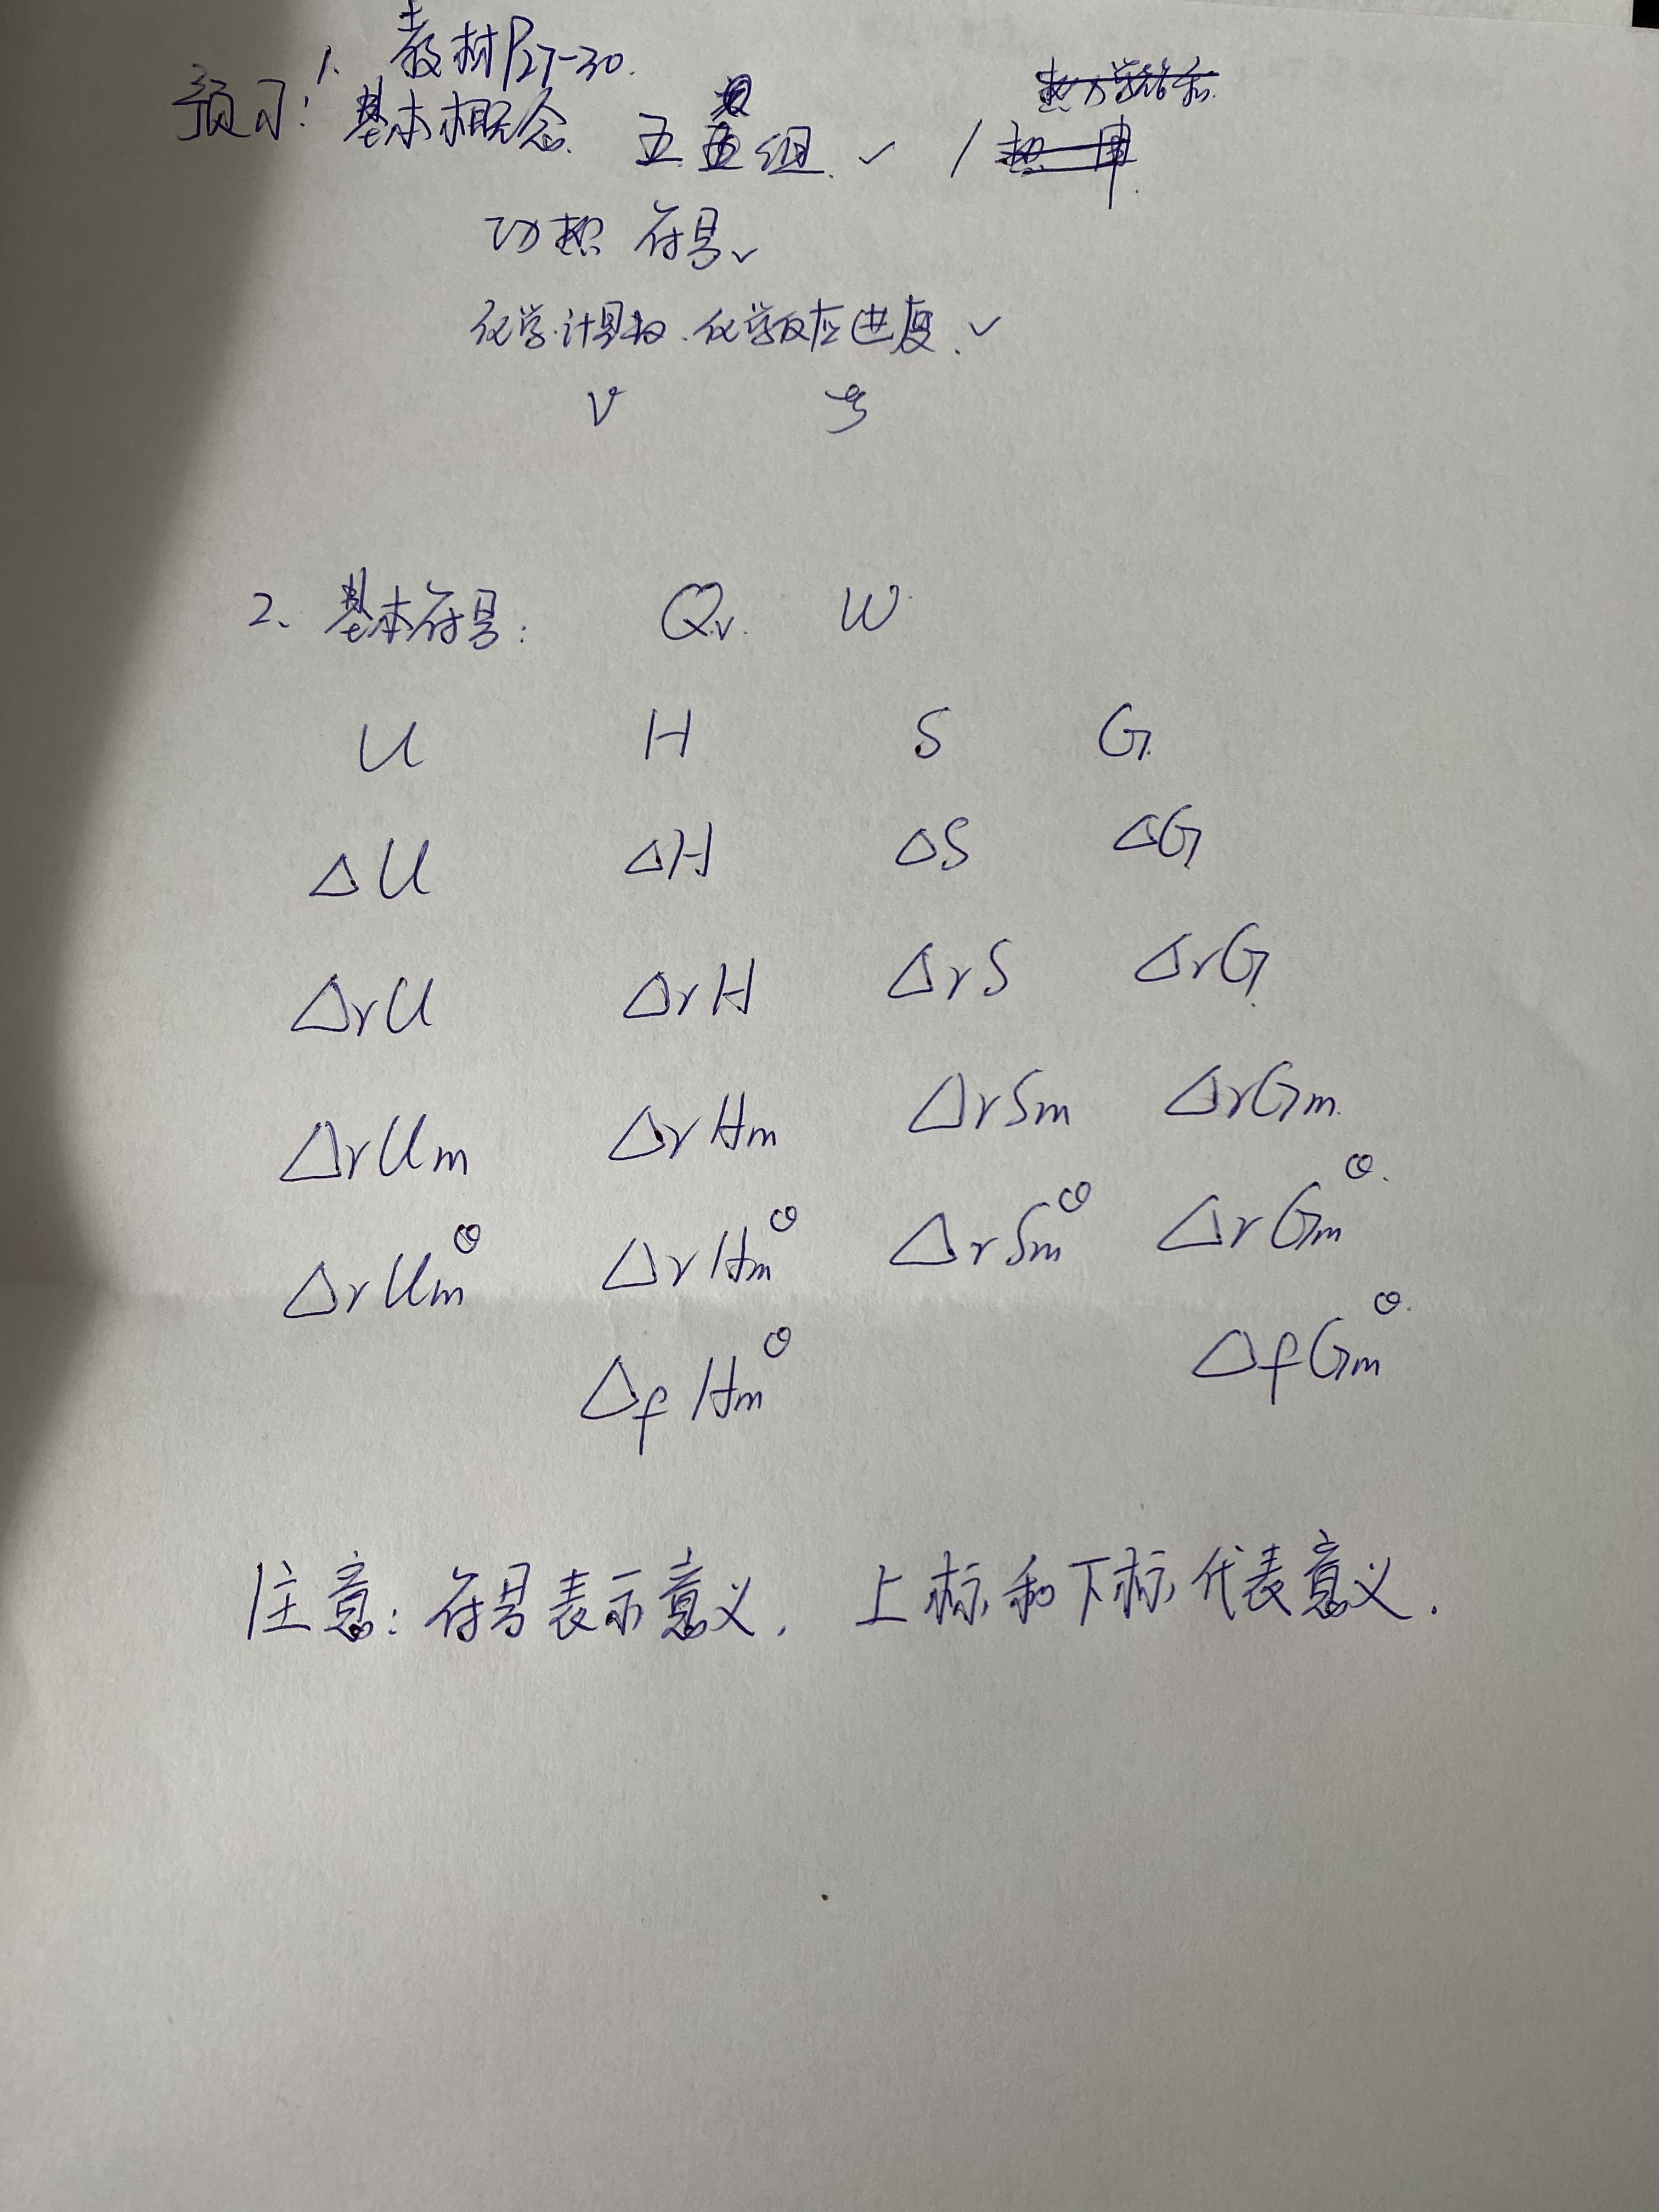 预习: 1. 教材P27-30.
基本概念. 五组. ✓ /
功热 符号✓
化学计量数. 化学反应进度. ✓
ν ξ
2、基本符号: Q、 W
U H S G
ΔU ΔH ΔS ΔG
ΔrU ΔrH ΔrS ΔrG
ΔrUm ΔrHm ΔrSm ΔrGm
ΔrUm^θ ΔrHm^θ ΔrSm^θ ΔrGm^θ
ΔfHm^θ ΔfGm^θ
注意: 符号表示意义, 上标和下标代表意义.